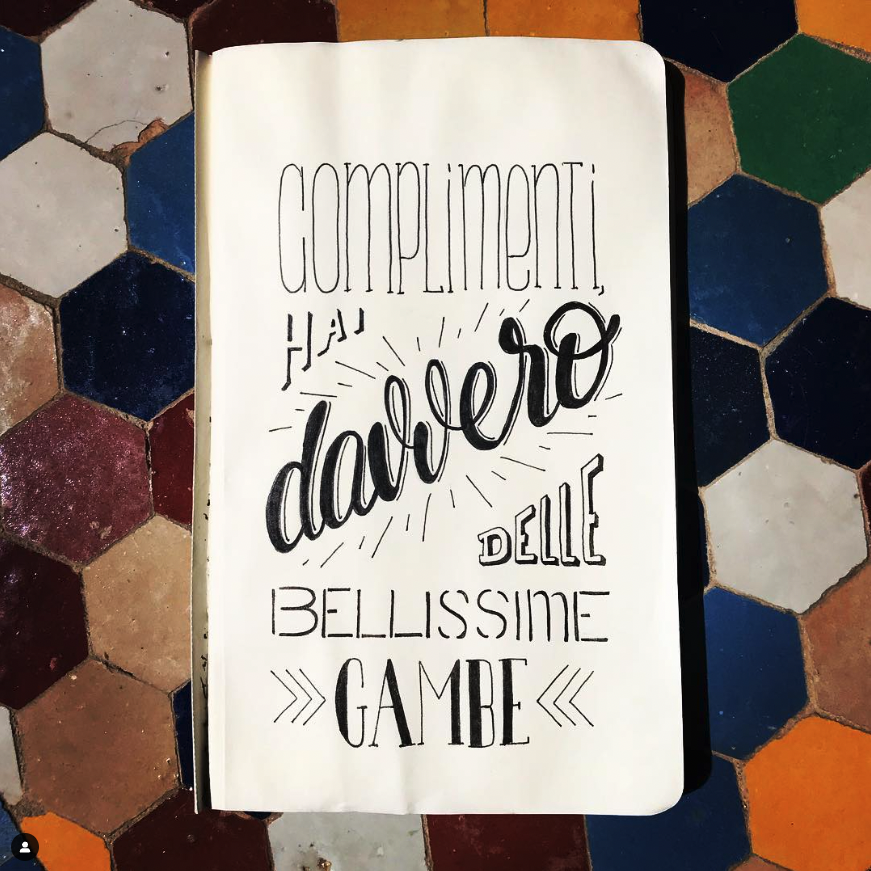 COMPLimenTi,
HAI
davvero
DELLE
BELLISSIME
GAMBE